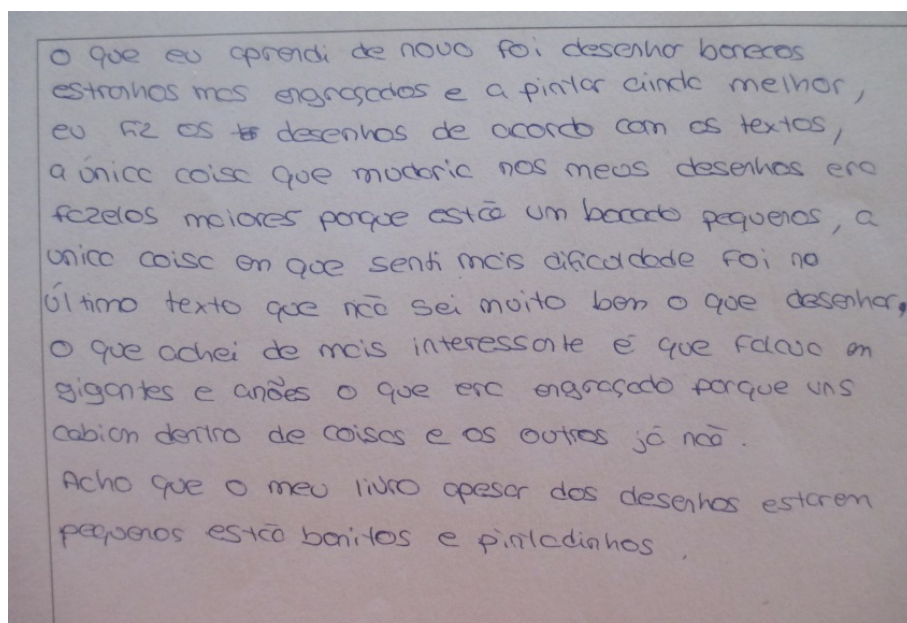 O que eu aprendi de novo foi desenhar bonecos
estranhos mas engraçados e a pintar ainda melhor,
eu fiz os desenhos de acordo com os textos,
a única coisa que mudaria nos meus desenhos era
fazelos maiores porque estão um bocado pequenos, a
unica coisa em que senti mais dificuldade foi no
último texto que não sei muito bem o que desenhar,
O que achei de mais interessante é que falava em
gigantes e anões o que era engraçado porque uns
cabiam dentro de coisas e os outros já não.
Acho que o meu livro apesar dos desenhos estarem
pequenos estão bonitos e pintadinhos.